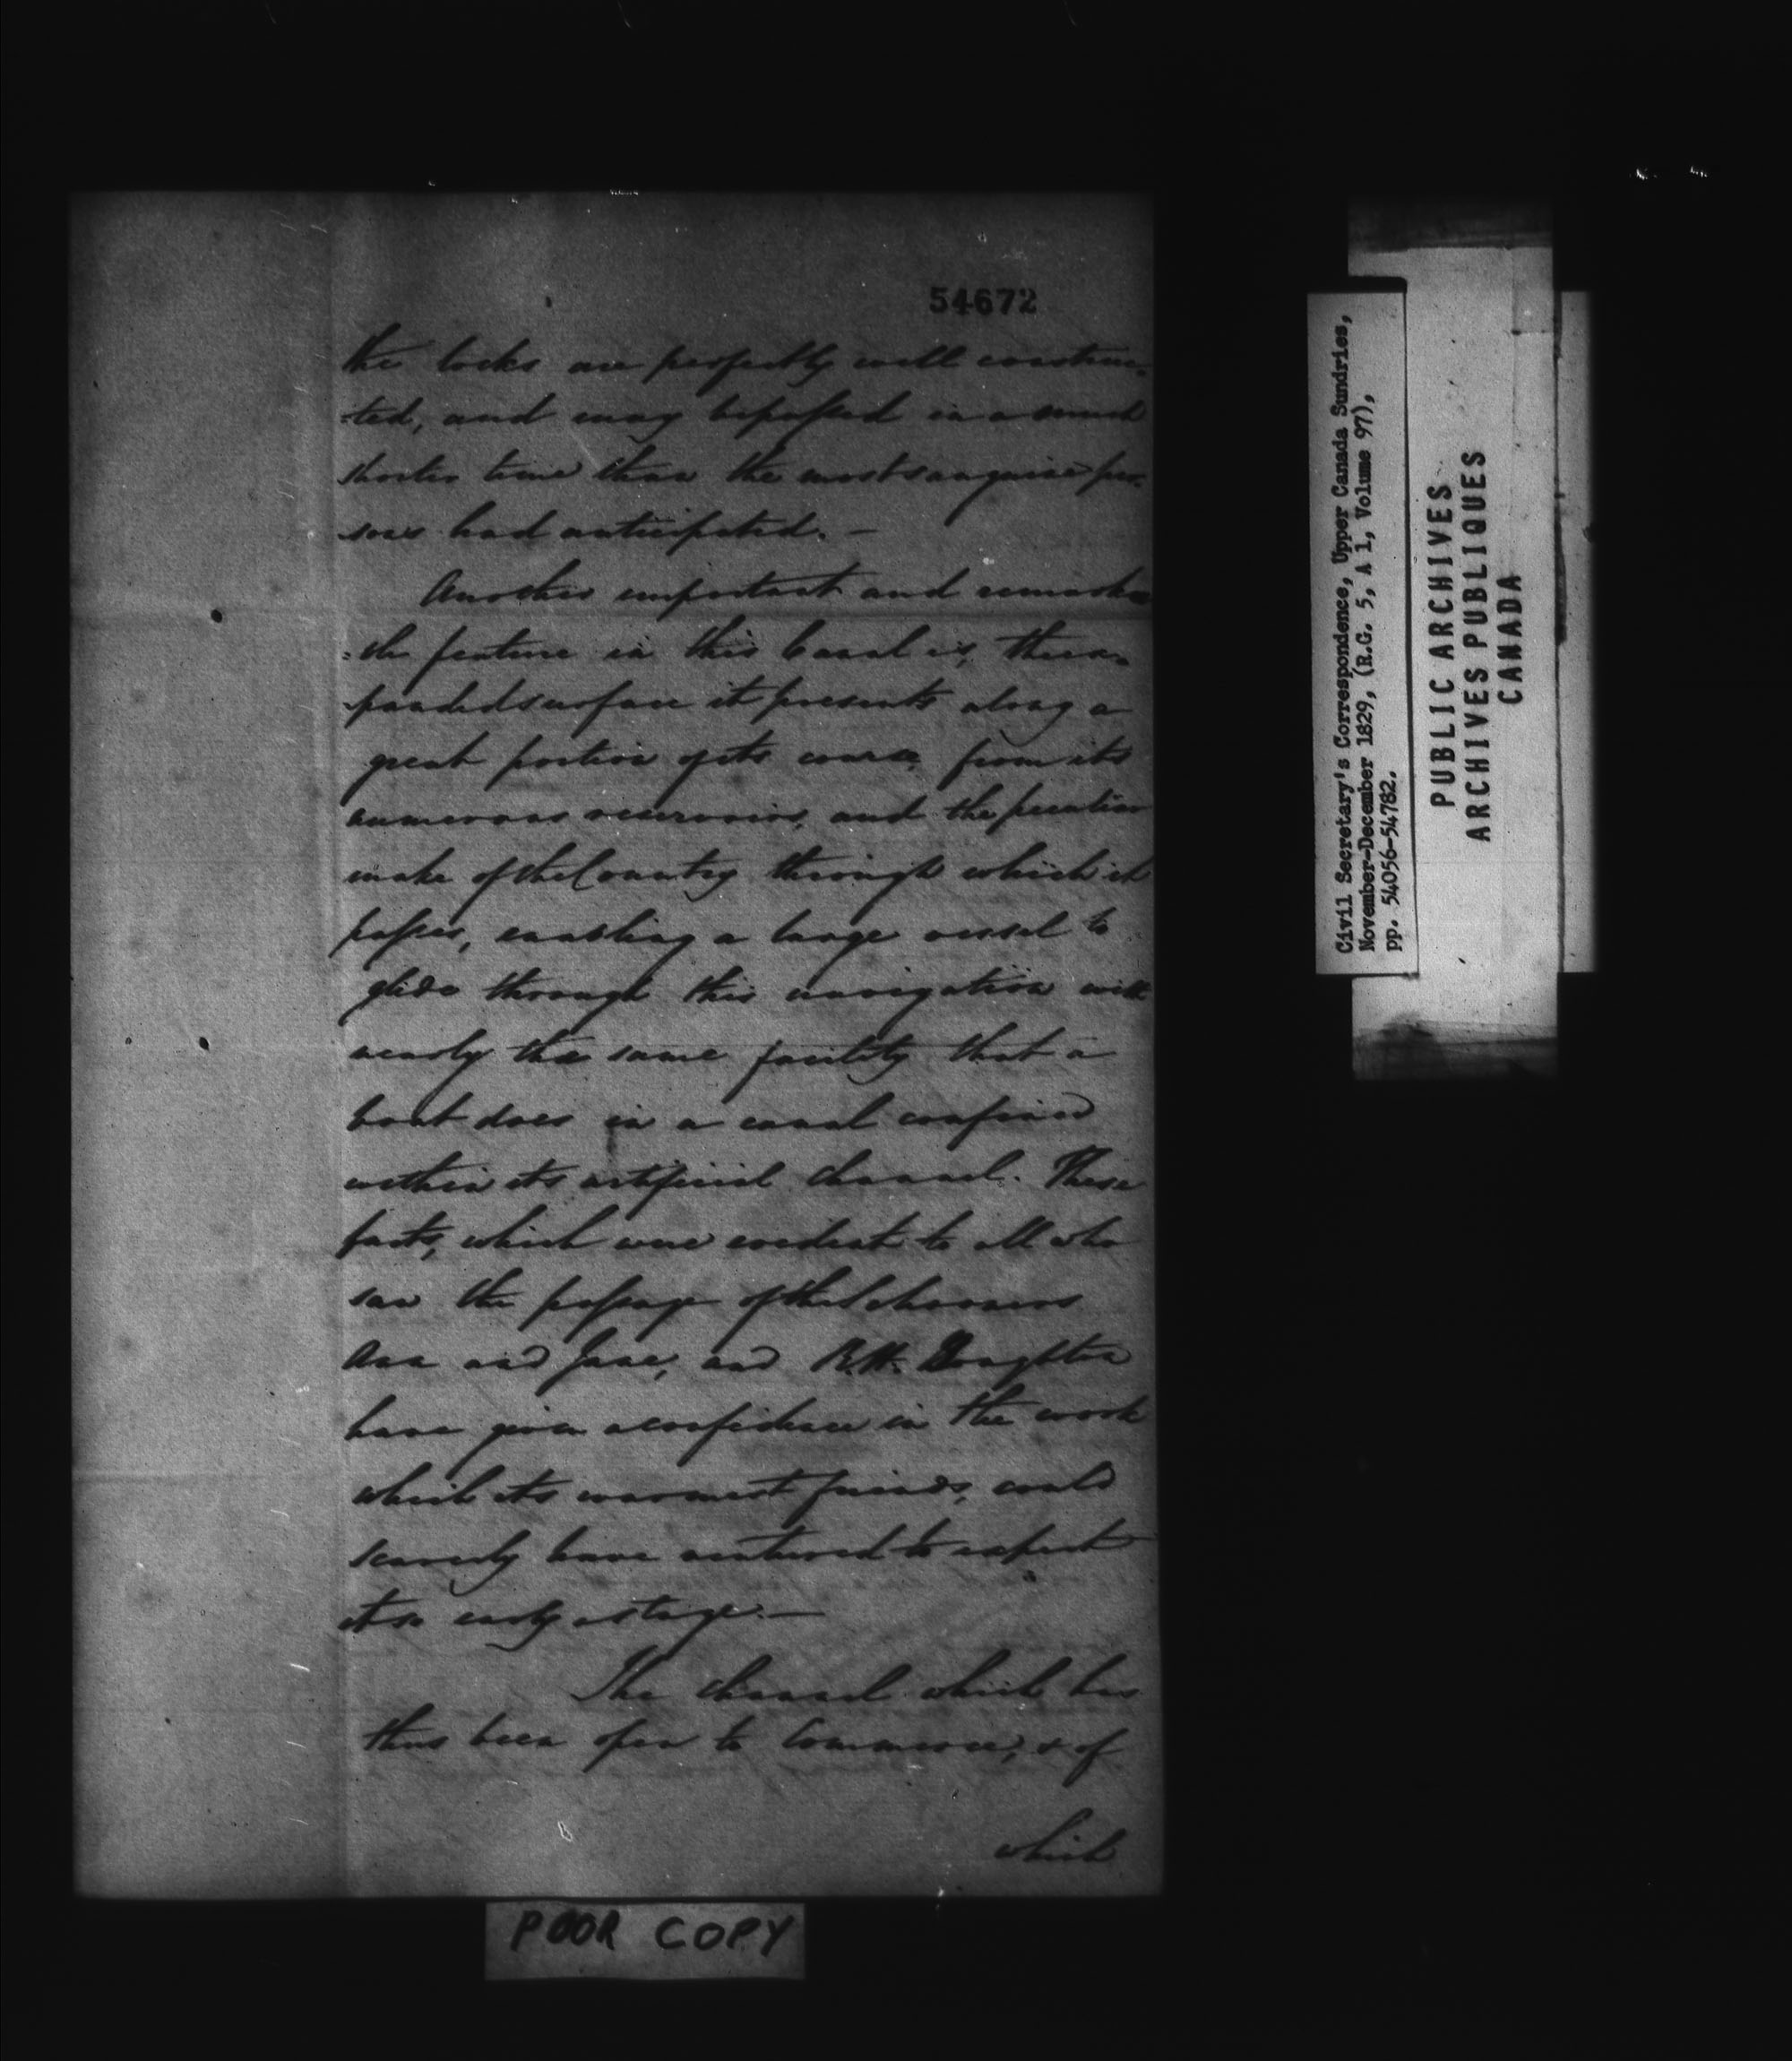 54672
the locks are perfectly well construc-
:ted, and may be passed in a much
shorter time than the most sanguine per-
sons had anticipated. —
Another important and remarka
:ble feature in this Canal is, the ex-
-panded surface it presents along a
great portion of its course, from its
numerous reservoirs, and the peculiar
make of the Country through which it
passes, enabling a large vessel to
glide through this navigation with
nearly the same facility that a
boat does in a canal confined
within its artificial channel. These
facts, which were evident to all who
saw the passage of the Schooners
Ann and Jane, and R.H. Boughton
have given a confidence in the work
which its warmest friends, could
scarcely have ventured to expect
at so early a stage. —
The channel which has
thus been open to Commerce, & of
which
POOR COPY
Civil Secretary's Correspondence, Upper Canada Sundries,
November-December 1829, (R.G. 5, A 1, Volume 97),
pp. 54056-54782.
PUBLIC ARCHIVES
ARCHIVES PUBLIQUES
CANADA